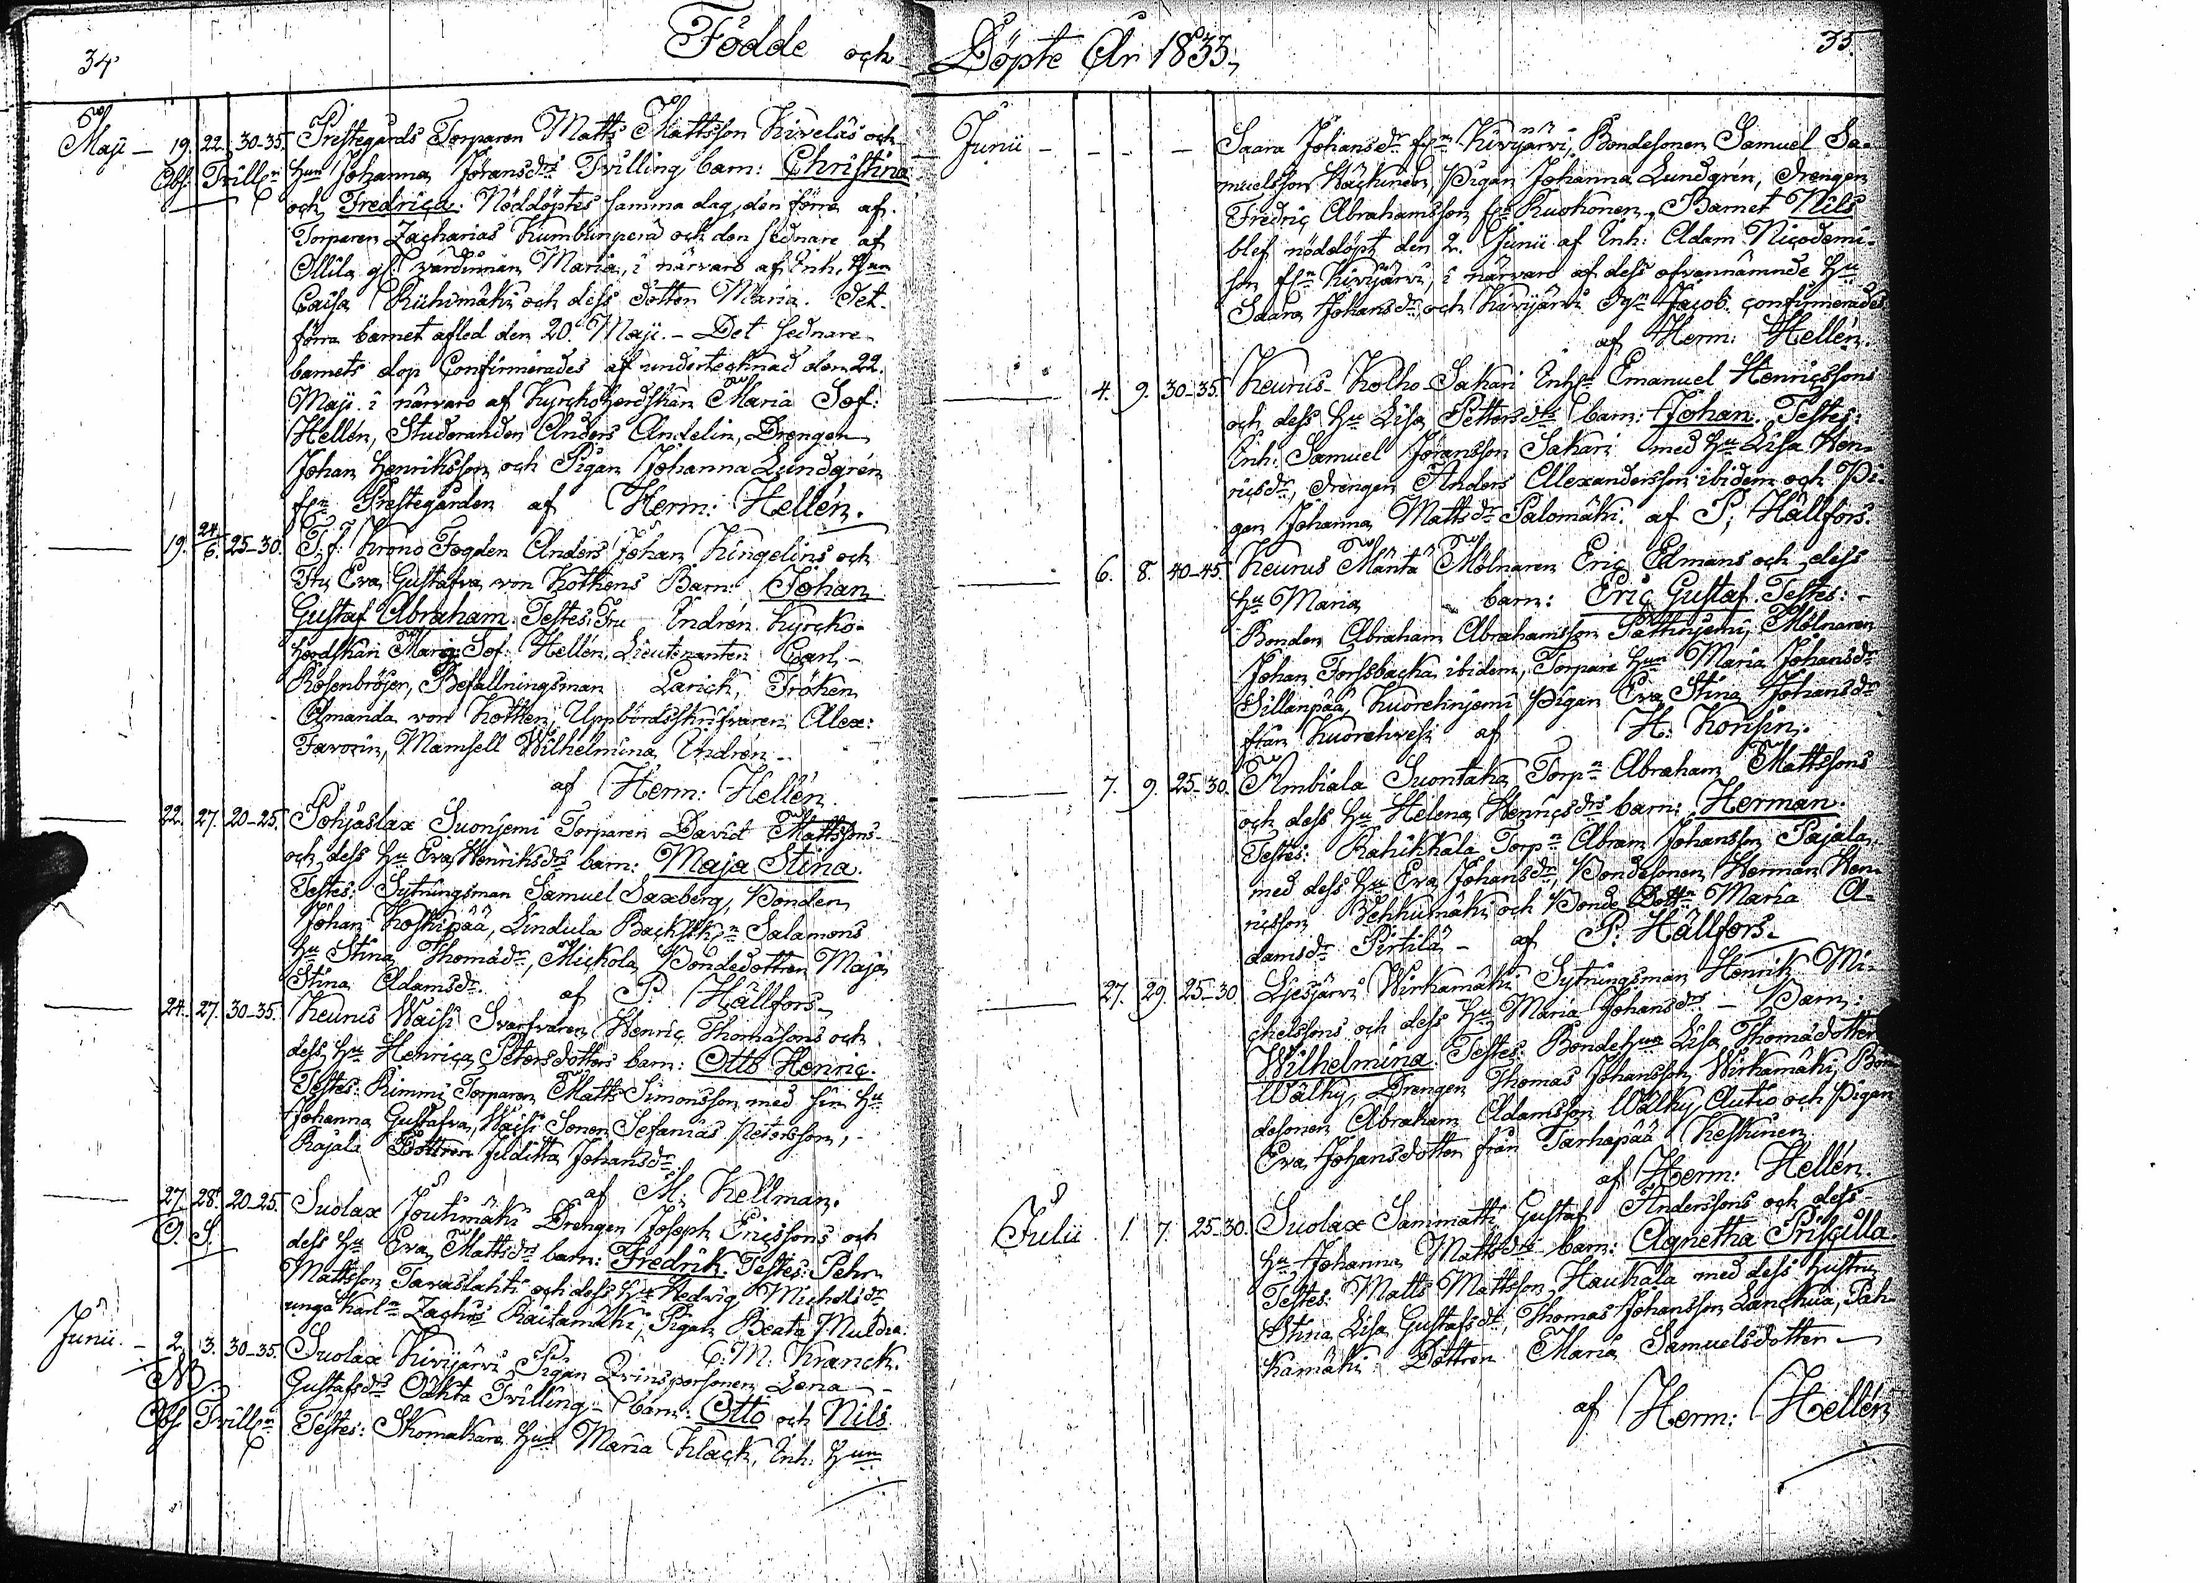 34.
Födde och
Maji – 19. 22. 30-35. Prestegårds Torparen Matts Mattsson Kiveläs och
Obs. Trill:n Hun Johanna Jöransdrs Tvilling barn: Christina
och Fredrica. Nöddöptes samma dag, den förra af
Torparen Zacharias Kumbunperä och den sednare af
Ollila gl. värdinnan Maria, i närvaro af Inh. Hun
Caisa Riihimäki och dess dotter Maria. Det
förra barnet afled den 20. Maji. – Det sednare
barnets dop Confirmerades af undertecknad den 22.
Maji i närvaro af Kyrckoherdskan Maria Sof:
Hellén, Studeranden Anders Andelin, Drengen
Johan Henriksson och Pigan Johanna Lundgrén
fn Prestegården af Herm: Hellén.
19. 24/6. 25-30. T. f. Krono Fogden Anders Johan Kingelins och
Fru Eva Gustafva von Kothens Barn: Johan
Gustaf Abraham. Testes: Fru Indrén. Kyrcko-
herdskan Maria Sof: Hellén, Lieutenanten Carl
Rosenbröijer, Befallningsman Larick, Fröken
Amanda von Kothen, Uppbördsskrifvaren Alex:
Favorin, Mamsell Wilhelmina Indrén
af Herm: Hellén.
22. 27. 20-25. Pohjaslax Suonjemi Torparen David Mattssons
och dess Hu Eva Henriksdrs barn: Maja Stina.
Testes: Sytningsman Samuel Saxberg, Bonden
Johan Koskipää, Lindula Backstk:n Salamons
Hu Stina Thomädr, Mickola Bondedottren Maja
Stina Adamsdr. af P. Hällfors
24. 27. 30-35. Keurus Waissi Svarfvaren Henric Thomäsons och
dess Hu Henrica Petersdotters barn: Otto Henric.
Testes: Rimmi Torparen Matts Simonsson med sin Hu
Johanna Gustafva, Waissi Sonen Sefanias Petersson,
Rajala Dottren Fredrika Johansdr.
af M. Kellman.
27. 28. 20-25. Suolax Joutimäki Drengen Joseph Ericssons och
O. S. dess Hu Eva Mattsdrs barn: Fredrik. Testes: Pehr
Mattsson Tavaslahti och dess Hu Hedvig Michelsdr
unga Karln Zachris Raitamäki, Pigan Beata Muldia.
C. M. Kranck.
Junii. – 2. 3. 30-35. Suolax Kivijärvi Pigan Qvinspersonen Lena
NB. Gustafsdrs Oächta Tvilling barn: Otto och Nils
Obs. Trill:n Testes: Skomakare Hun Maria Klack, Inh: Hun
Döpte År 1833.
35.
Junii – – – – Saara Johansdr fn Kivijärvi, Bondesonen Samuel Sa-
muelsson Häckinen, Pigan Johanna Lundgrén, Drengen
Fredric Abrahamsson fn Ruokonen. Barnet Nils
blef nöddöpt den 2. Junii af Inh: Adam Nicodemi-
son fn Kivijärvi, i närvaro af dess ofvannämnde Hu
Saara Johansdr och Kivijärvi Dgn Jacob. Confirmerades
af Herm: Hellén.
4. 9. 30-35. Keurus Kolho Sakari Inhs Emanuel Henricssons
och dess Hu Lisa Pettersdrs barn: Johan. Testes:
Inh: Samuel Jöransson Sakari med Hu Lisa Hen-
ricsdr, Drengen Anders Alexandersson ibidem och Pi-
gan Johanna Mattsdr Palomäki. af P. Hällfors.
6. 8. 40-45. Keurus Mänta Mölnaren Eric Edmans och dess
Hu Maria barn: Eric Gustaf. Testes: –
Bonden Abraham Abrahamsson Pättinjemi, Mölnaren
Johan Forssbacka ibidem, Torpare Hun Maria Johansdr
Sillanpää, Kuorehnjemi Pigan Eva Stina Johansdr
från Kuorehvesi af H. Konsin.
7. 9. 25-30. Ambiala Suontaka Torp:n Abraham Mattssons
och dess Hu Helena Henricsdrs barn: Herman.
Testes: Rahikkala Torp:n Abram Johansson Pajala,
med dess Hu Eva Johansdr, Bondesonen Herman Hen-
ricsson Vehkumäki och Bonde Dottn Maria A-
damsdr Pirtilä – af P. Hällfors.
27. 29. 25-30 Ljesjärvi Wirkamäki Sytningsman Henrik Mi-
chelssons och dess Hu Maria Johansdrs – Barn:
Wilhelmina. Testes: BondeHun Lisa Thomädotter
Wälky, Drengen Thomas Johansson Wirkamäki, Bon-
desonen Abraham Adamsson Wälky Autio och Pigan
Eva Johansdotter från Tarhapää Keskinen,
af Herm: Hellén.
Julii 1. 7. 25-30. Suolax Sammatti Gustaf Anderssons och dess
Hu Johanna Mattsdrs barn: Agnetha Priscilla.
Testes: Matts Mattsson Haukala med dess hustru
Stina Lisa Gustafsdr, Thomas Johansson Lanckia, Pah-
kamäki Dottren Maria Samuelsdotter –
af Herm: Hellén